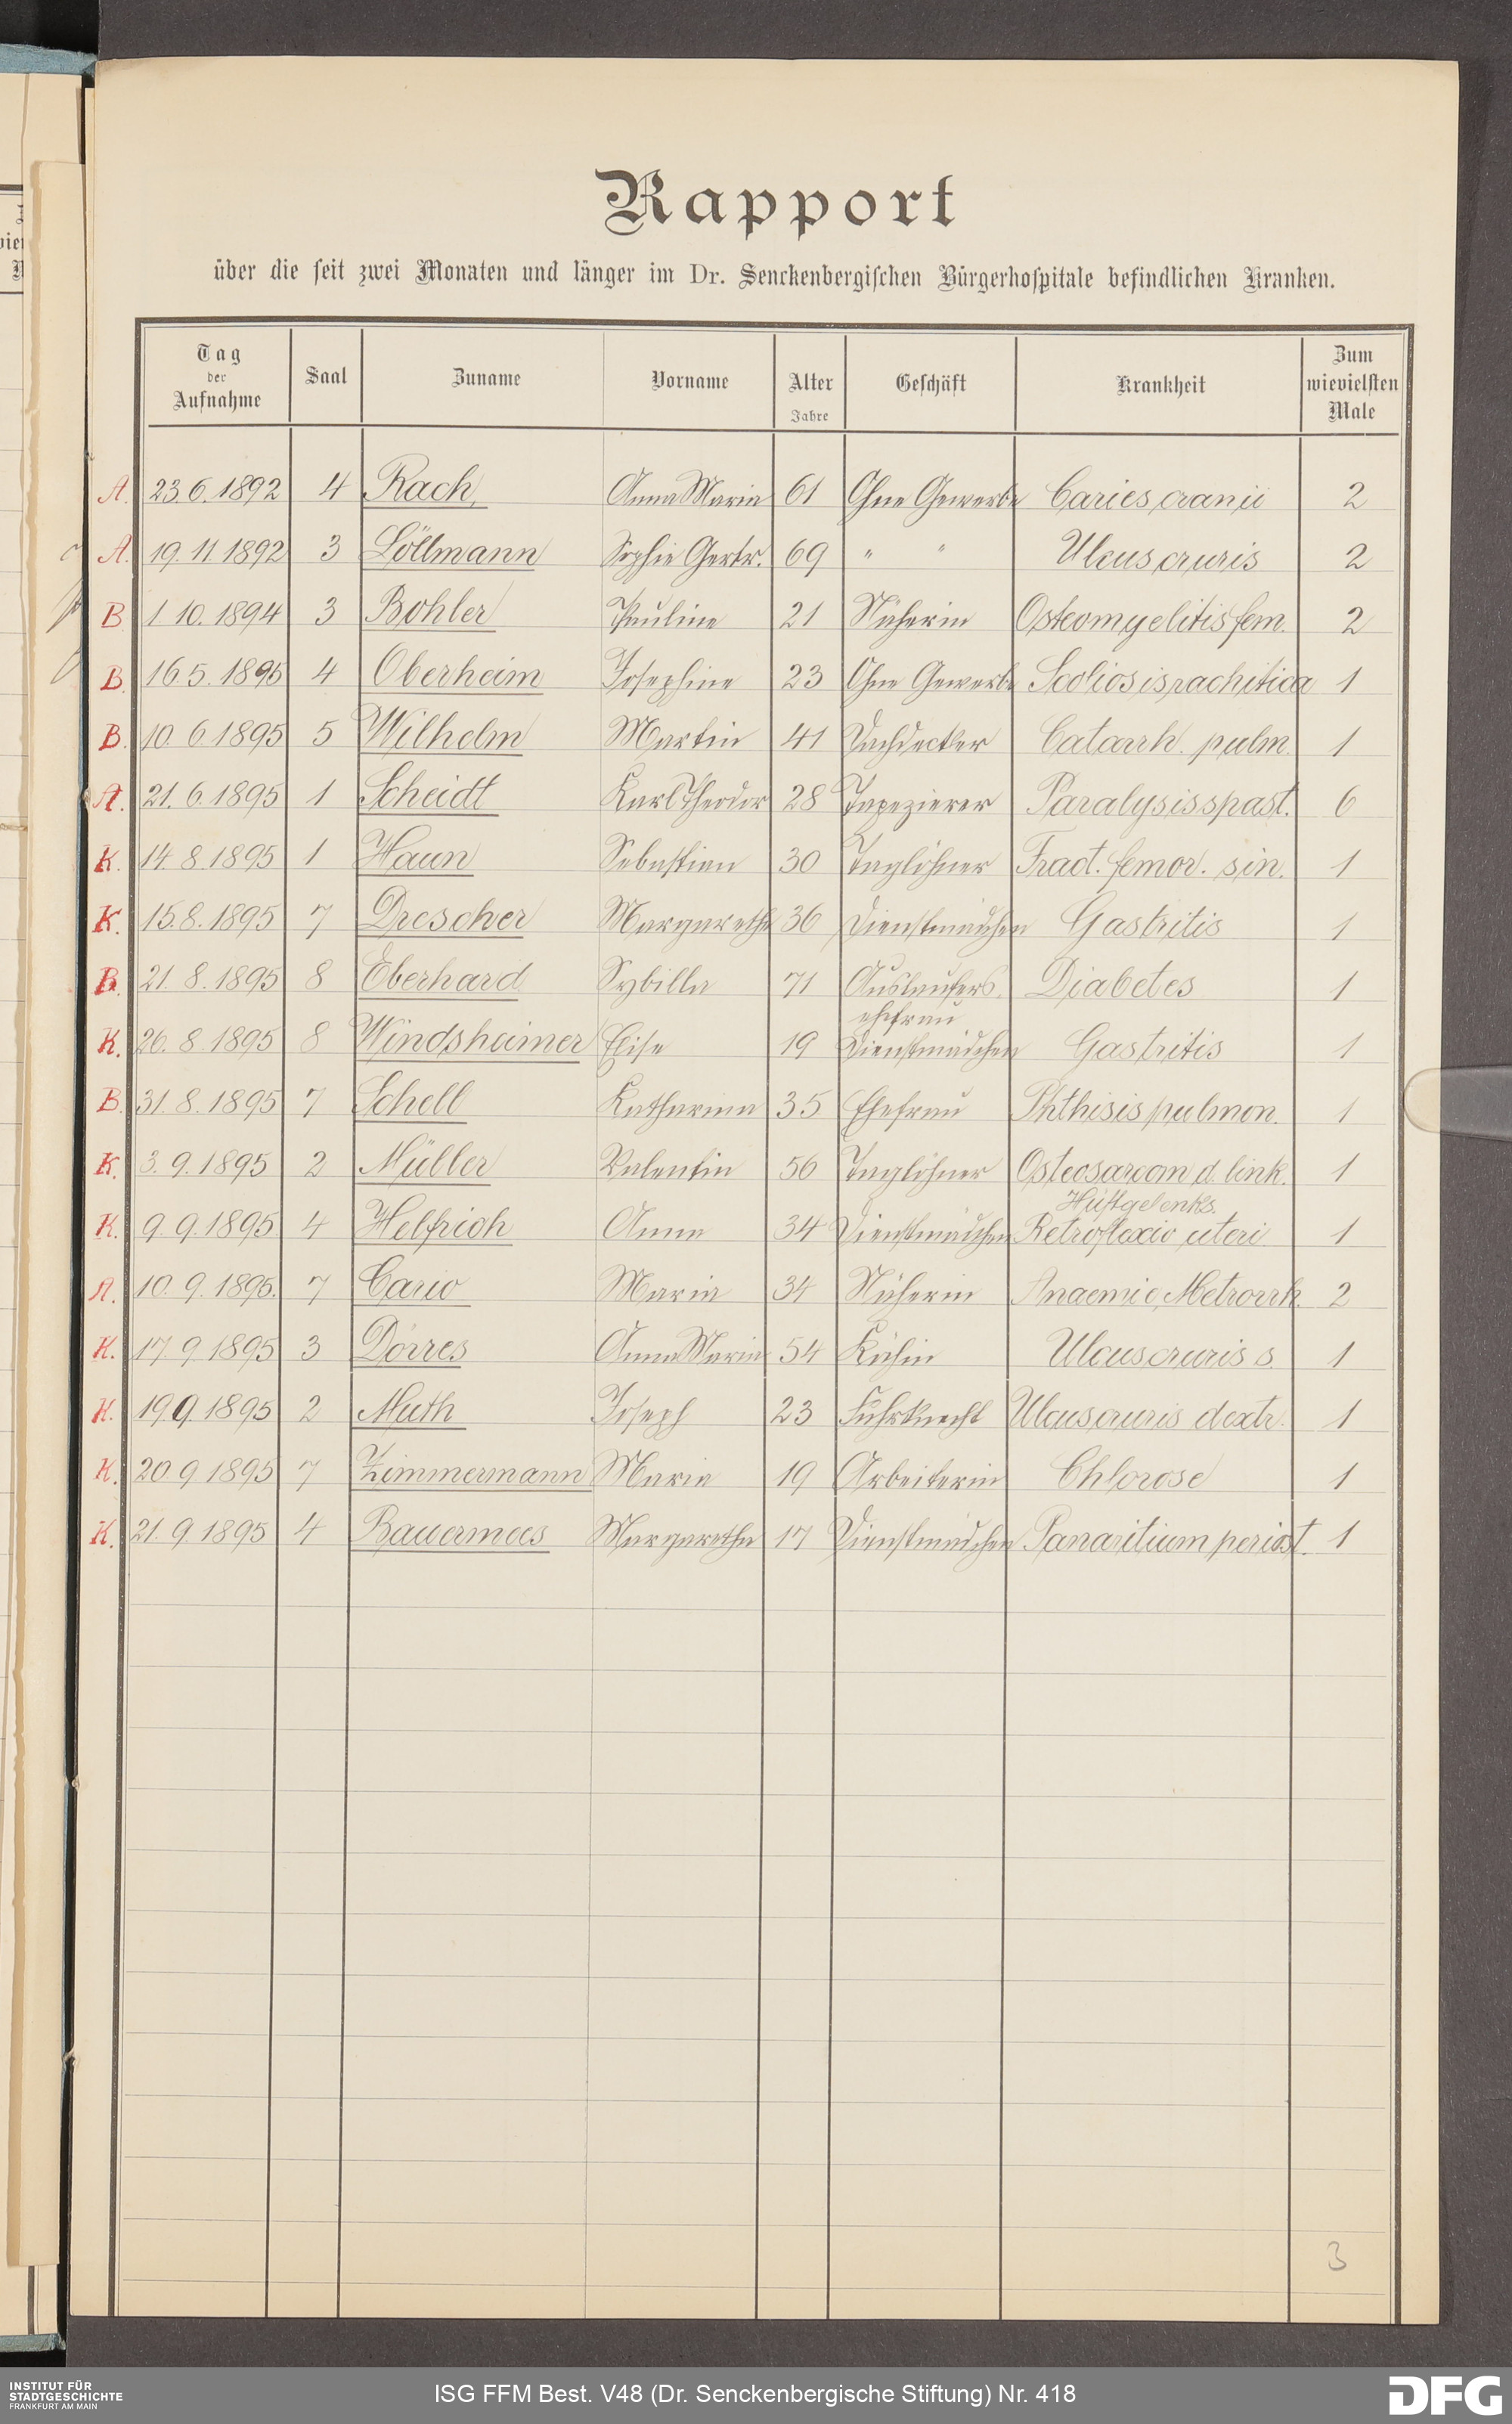 Rapport
über die seit zwei Monaten und länger im Dr. Senckenbergischen Bürgerhospitale befindlichen Kranken.
Tag der Aufnahme Saal Zuname Vorname Alter Jahre Geschäft Krankheit Zum wievielsten Male
A. 23.6.1892 4 Rach Anna Maria 61 Ohne Gewerbe Caries cranii 2
A. 19.11.1892 3 Löllmann Sophie Gertr. 69 " " Ulcus cruris 2
B 1.10.1894 3 Bohler Pauline 21 Näherin Osteomyelitis fem. 2
B. 16.5.1895 4 Oberheim Josephine 23 Ohne Gewerbe Scoliosis rachitica 1
B. 10.6.1895 5 Wilhelm Martin 41 Dachdecker Catarrh. pulm. 1
A. 21.6.1895 1 Scheidt Karl Theodor 28 Tapezierer Paralysis spast. 6
K. 14.8.1895 1 Haun Sebastian 30 Taglöhner Fract. femor. sin. 1
K. 15.8.1895 7 Drescher Margarethe 36 Dienstmädchen Gastritis 1
B. 21.8.1895 8 Eberhard Sybilla 71 Auslaufers Diabetes 1
ehefrau
K. 26.8.1895 8 Windsheimer Elise 19 Dienstmädchen Gastritis 1
B. 31.8.1895 7 Schell Katharina 35 Ehefrau Phthisis pulmon. 1
K. 3.9.1895 2 Müller Valentin 56 Taglöhner Osteosarcom d. link. 1
Hüftgelenks.
K. 9.9.1895 4 Helfrich Anna 34 Dienstmädchen Retroflexio uteri 1
A. 10.9.1895. 7 Cario Maria 34 Näherin Anaemie, Metrorrh. 2
K. 17.9.1895 3 Dörres Anna Maria 54 Köchin Ulcus cruris s. 1
K. 19.9.1895 2 Muth Joseph 23 Fuhrknecht Ulcus cruris dextr. 1
K. 20.9.1895 7 Zimmermann Maria 19 Arbeiterin Chlorose 1
K. 21.9.1895 4 Margaretha 17 Dienstmädchen Panaritium periost. 1
3
INSTITUT FÜR
STADTGESCHICHTE
FRANKFURT AM MAIN
ISG FFM Best. V48 (Dr. Senckenbergische Stiftung) Nr. 418
DFG